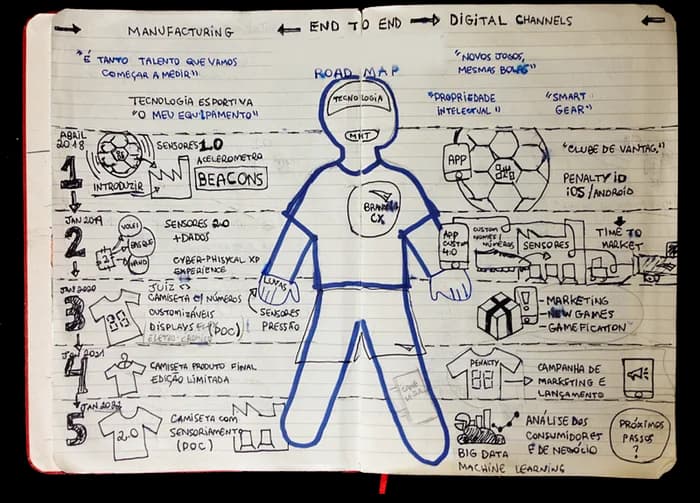 MANUFACTURING
END TO END
DIGITAL CHANNELS
"É TANTO TALENTO QUE VAMOS
COMEÇAR A MEDIR"
TECNOLOGIA ESPORTIVA
"O MEU EQUIPAMENTO"
ROAD MAP
"NOVOS JOGOS,
MESMAS BOLAS"
"PROPRIEDADE
INTELECTUAL"
"SMART
GEAR"
TECNOLOGIA
MKT
ABRIL
2018
1
INTRODUZIR
SENSORES 1.0
ACELEROMETRO
BEACONS
APP
"CLUBE DE VANTAG."
PENALTY ID
iOS/ANDROID
JAN 2019
2
VOLEI
BASQUE
HAND
SENSORES 2.0
+DADOS
CYBER-PHISYCAL XP
EXPERIENCE
CX
APP
CUSTOM
4.0
CUSTOM
NOMES/
NÚMEROS
SENSORES
TIME TO
MARKET
3
JUIZ
CAMISETA C/ NÚMEROS
CUSTOMIZÁVEIS
DISPLAYS
(POC)
LUVAS
SENSORES
PRESSÃO
- MARKETING
- NEW GAMES
- GAMEFICATION
4
CAMISETA PRODUTO FINAL
EDIÇÃO LIMITADA
PENALTY
88
CAMPANHA DE
MARKETING E
LANÇAMENTO
5
2.0
CAMISETA COM
SENSORIAMENTO
(POC)
BIG DATA
MACHINE LEARNING
ANÁLISE DOS
CONSUMIDORES
E DE NEGÓCIO
PRÓXIMOS
PASSOS
?